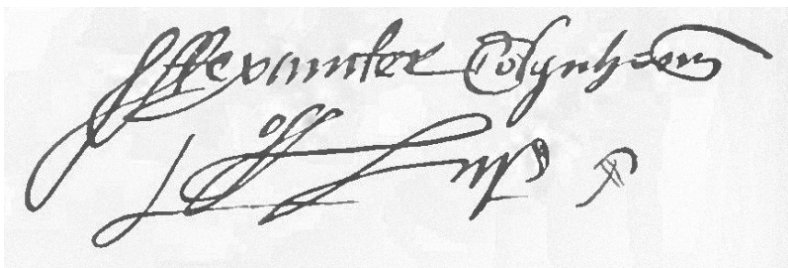 Alexander Colquhoun
off Luß